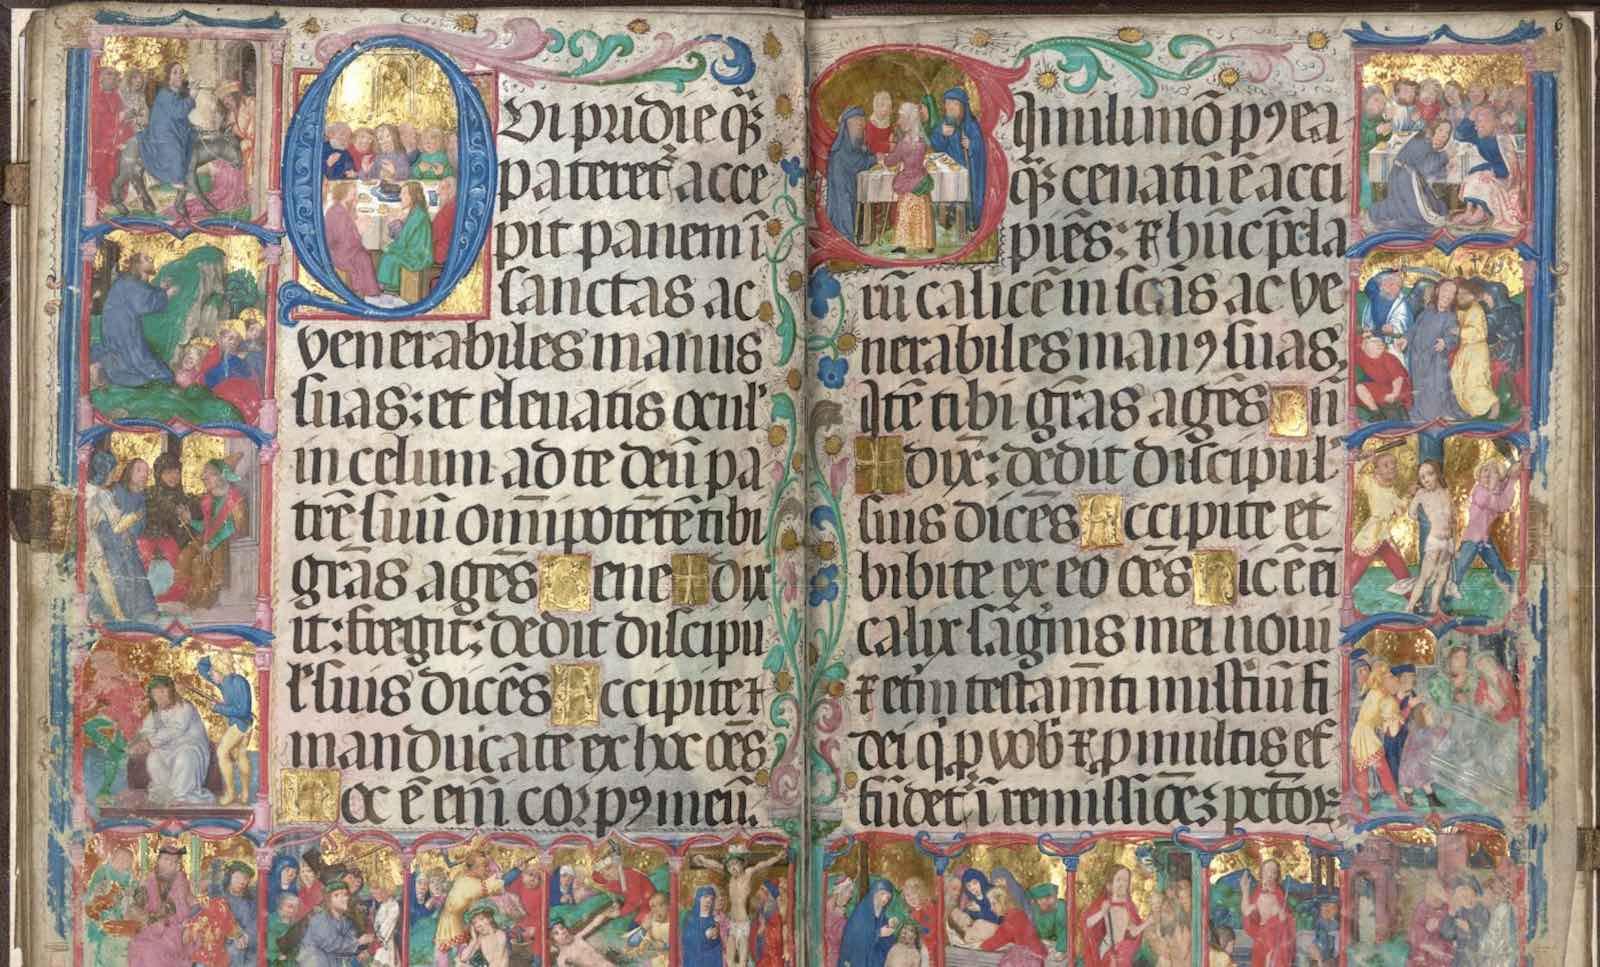 QVi pridie q̃
pateret᷑ acce
pit panem ĩ
sanctas ac
venerabiles manus
suas: et eleuatis ocul'
in celum ad te deũ pa
trẽ suũ om̃ipotẽtẽ tibi
gr̃as agẽs Bene✠dix
it: fregit: dedit discipu
l' suis dicẽs Accipite ⁊
manducate ex hoc oẽs
Hoc ẽ em̃ corpꝯ meũ.
6
Simili mõ pꝯea
q̃ cenatũ ẽ acci
piẽs: ⁊ hũc p̃cla
rũ calicẽ in sc̃as ac ve
nerabiles manꝯ suas,
Itẽ tibi gr̃as agẽs Bñ
✠dix̃: dedit discipul'
suis dicẽs Accipite et
bibite ex eo oẽs Hic ẽ em̃
calix sãgĩnis mei noui
⁊ et̃ni testam̃ti misteriũ fi
dei q̃ ꝓ vob̃ ⁊ ꝓ multis ef
fũdet᷑ ĩ remissiõeʒ pctõꝝ